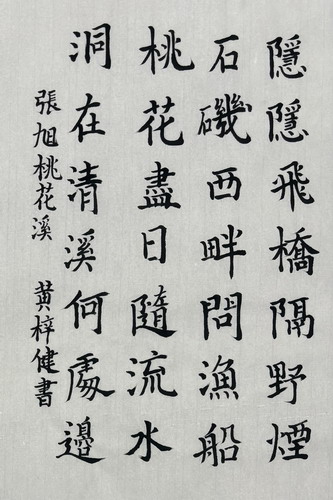 隱隱飛橋隔野煙
石磯西畔問漁船
桃花盡日隨流水
洞在清溪何處邊
張旭桃花溪 黃梓健書